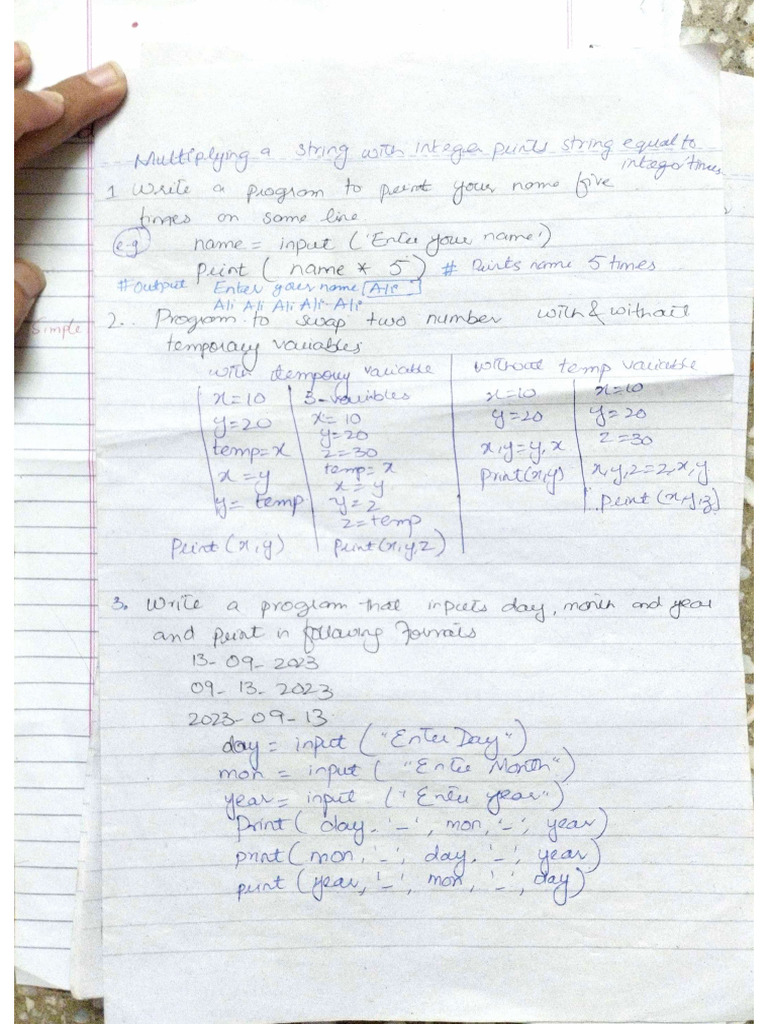 Multiplying a string with integer prints string equal to
integer times
1 Write a program to print your name five
times on same line
e.g name = input ('Enter your name')
print ( name * 5 ) # Prints name 5 times
#output Enter your name Ali
Ali Ali Ali Ali Ali
Simple
2.. Program to swap two number with & without
temporary variables
with temporary variable
x=10
y=20
temp=x
x=y
y= temp
print(x,y)
3-variables
x=10
y=20
z=30
temp=x
x=y
y=z
z=temp
print(x,y,z)
without temp variable
x=10
y=20
x,y=y,x
print(x,y)
x=10
y=20
z=30
x,y,z=z,x,y
print (x,y,z)
3. Write a program that inputs day, month and year
and print in following Formats
13-09-2023
09-13-2023
2023-09-13
day = input ("Enter Day")
mon = input ( "Enter Month")
year= input ("Enter year")
Print( day, '-', mon, '-', year)
print( mon, '-', day, '-', year)
print (year, '-', mon, '-', day)